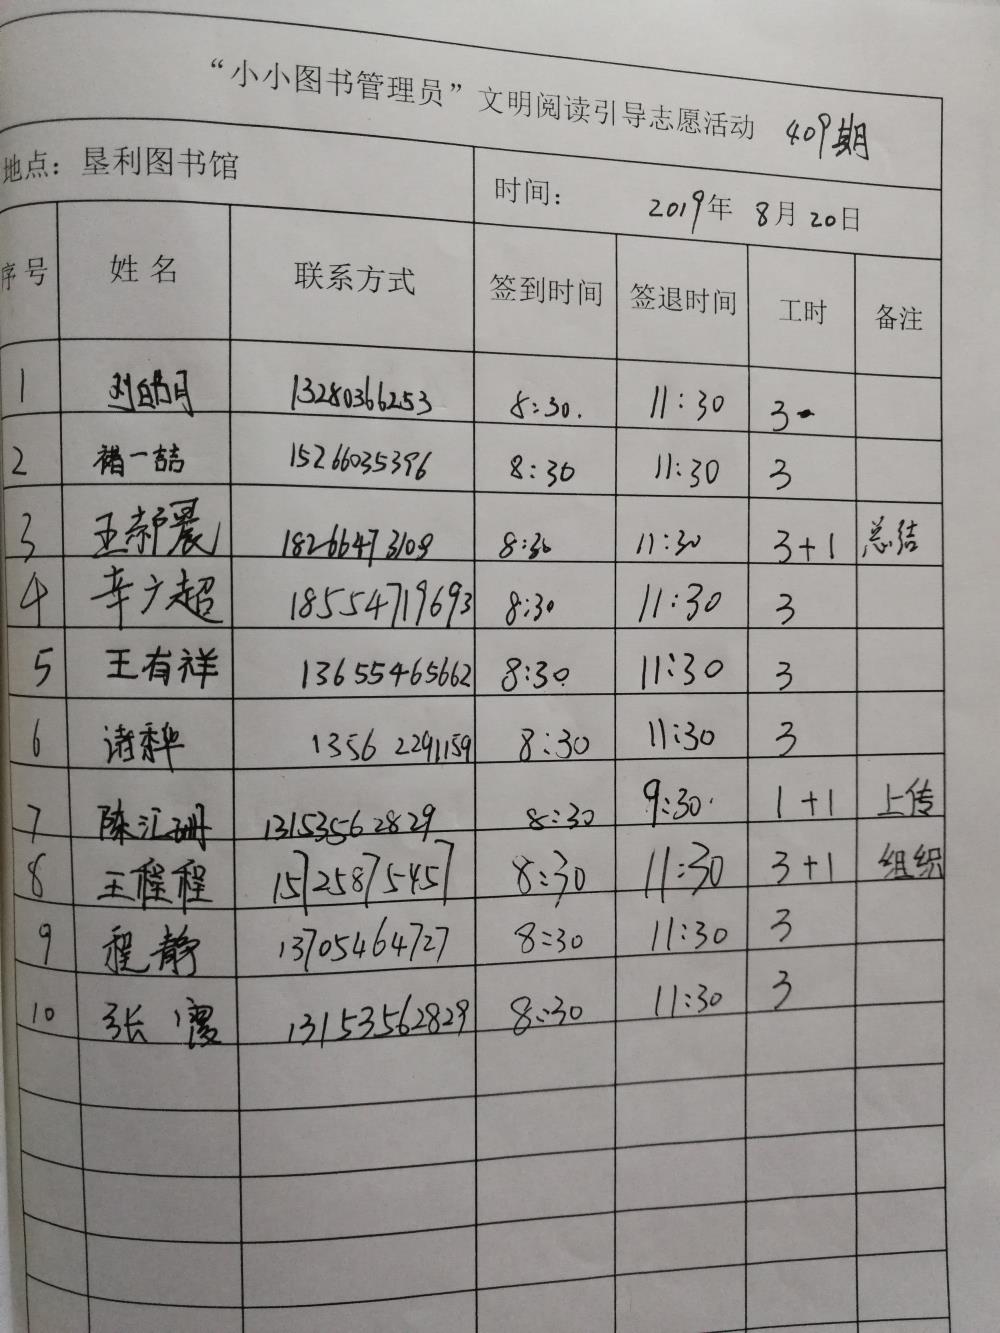 “小小图书管理员”文明阅读引导志愿活动 409期
地点：垦利图书馆 时间： 2019年 8月20日
序号 姓名 联系方式 签到时间 签退时间 工时 备注
1 刘皓月 13280366253 8:30. 11:30 3
2 褚一喆 15266035396 8:30 11:30 3
3 王 晨 18266473109 8:30 11:30 3+1 总结
4 辛广超 18554719693 8:30 11:30 3
5 王有祥 13655465662 8:30 11:30 3
6 13562291159 8:30 11:30 3
7 陈汇珊 13153562829 8:30 9:30. 1+1 上传
8 王程程 15725875457 8:30 11:30 3+1 组织
9 程静 13705464727 8:30 11:30 3
10 张霞 13153562829 8:30 11:30 3